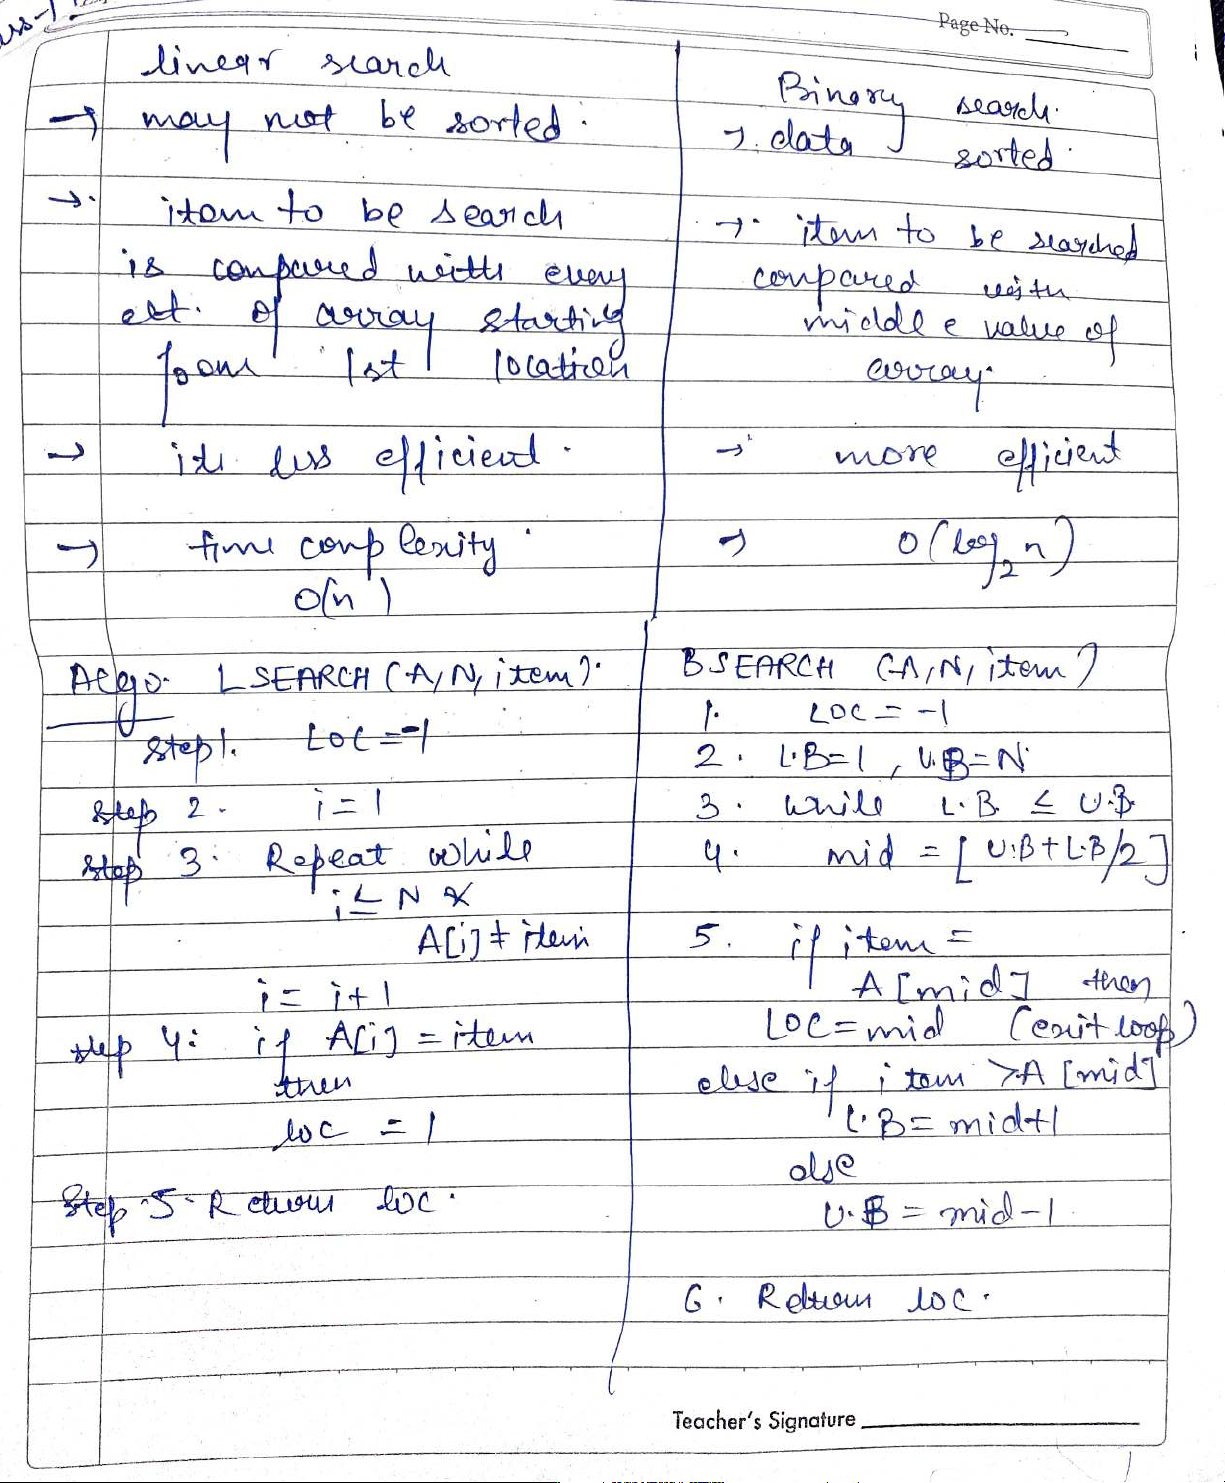 Page No.
linear search
→ may not be sorted.
→ item to be search
is compared with every
elt. of array starting
from 1st location
→ its less efficient.
→ time complexity
O(n)
Binary search.
→ data sorted
→ item to be searched
compared with
middle value of
array.
→ more efficient
→ O(log₂n)
Algo. LSEARCH (A, N, item).
Step 1. LOC = -1
Step 2. i = 1
Step 3. Repeat while
i ≤ N &
A[i] ≠ item
i = i+1
step 4: if A[i] = item
then
loc = 1
Step 5. Return loc.
BSEARCH (A, N, item)
1. LOC = -1
2. L.B=1, U.B=N
3. while L.B ≤ U.B
4. mid = [U.B+L.B/2]
5. if item =
A[mid] then
LOC = mid (exit loop)
else if item > A[mid]
L.B = mid+1
else
U.B = mid-1
6. Return loc.
Teacher's Signature